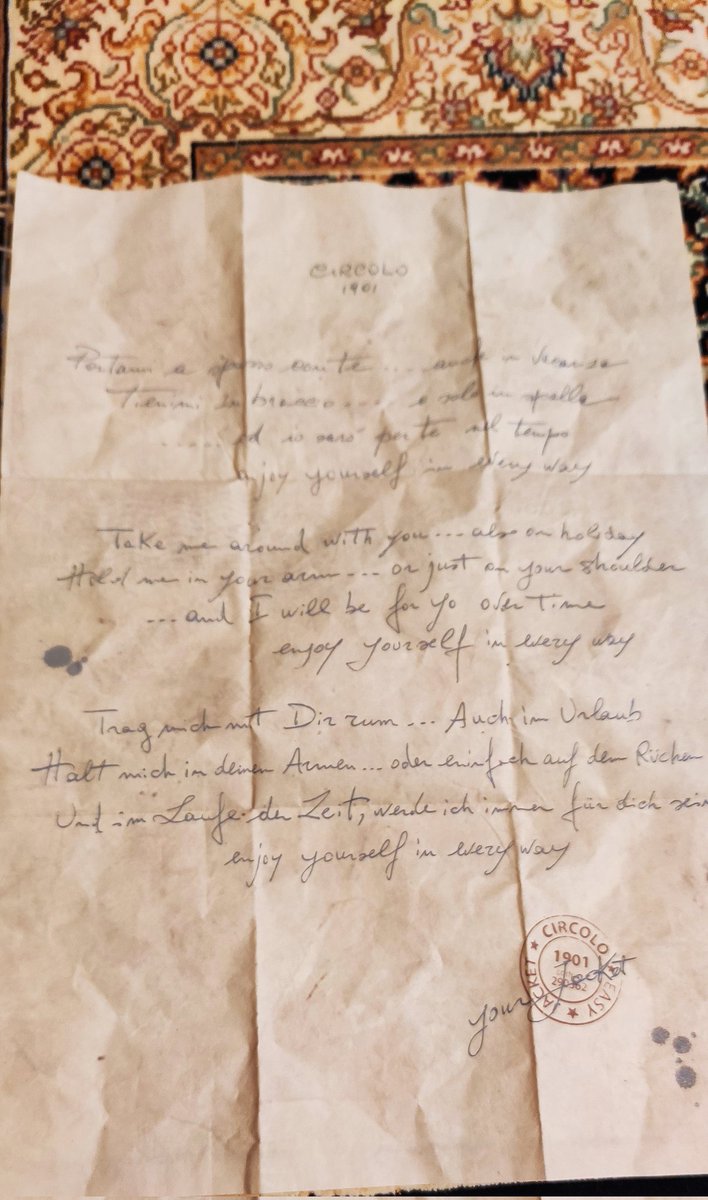 CIRCOLO
1901
Portami a spasso con te.... anche in vacanza
Tienimi in braccio.... o solo in spalla
..... ed io sarò per te nel tempo
enjoy yourself in every way
Take me around with you... also on holiday
Hold me in your arm... or just on your shoulder
...and I will be for yo over time
enjoy yourself in every way
Trag mich mit Dir rum... Auch im Urlaub
Halt mich in deinen Armen... oder einfach auf den Rücken
Und im Laufe der Zeit, werde ich immer für dich sein
enjoy yourself in every way
CIRCOLO
1901
EASY JACKET
your Jacket